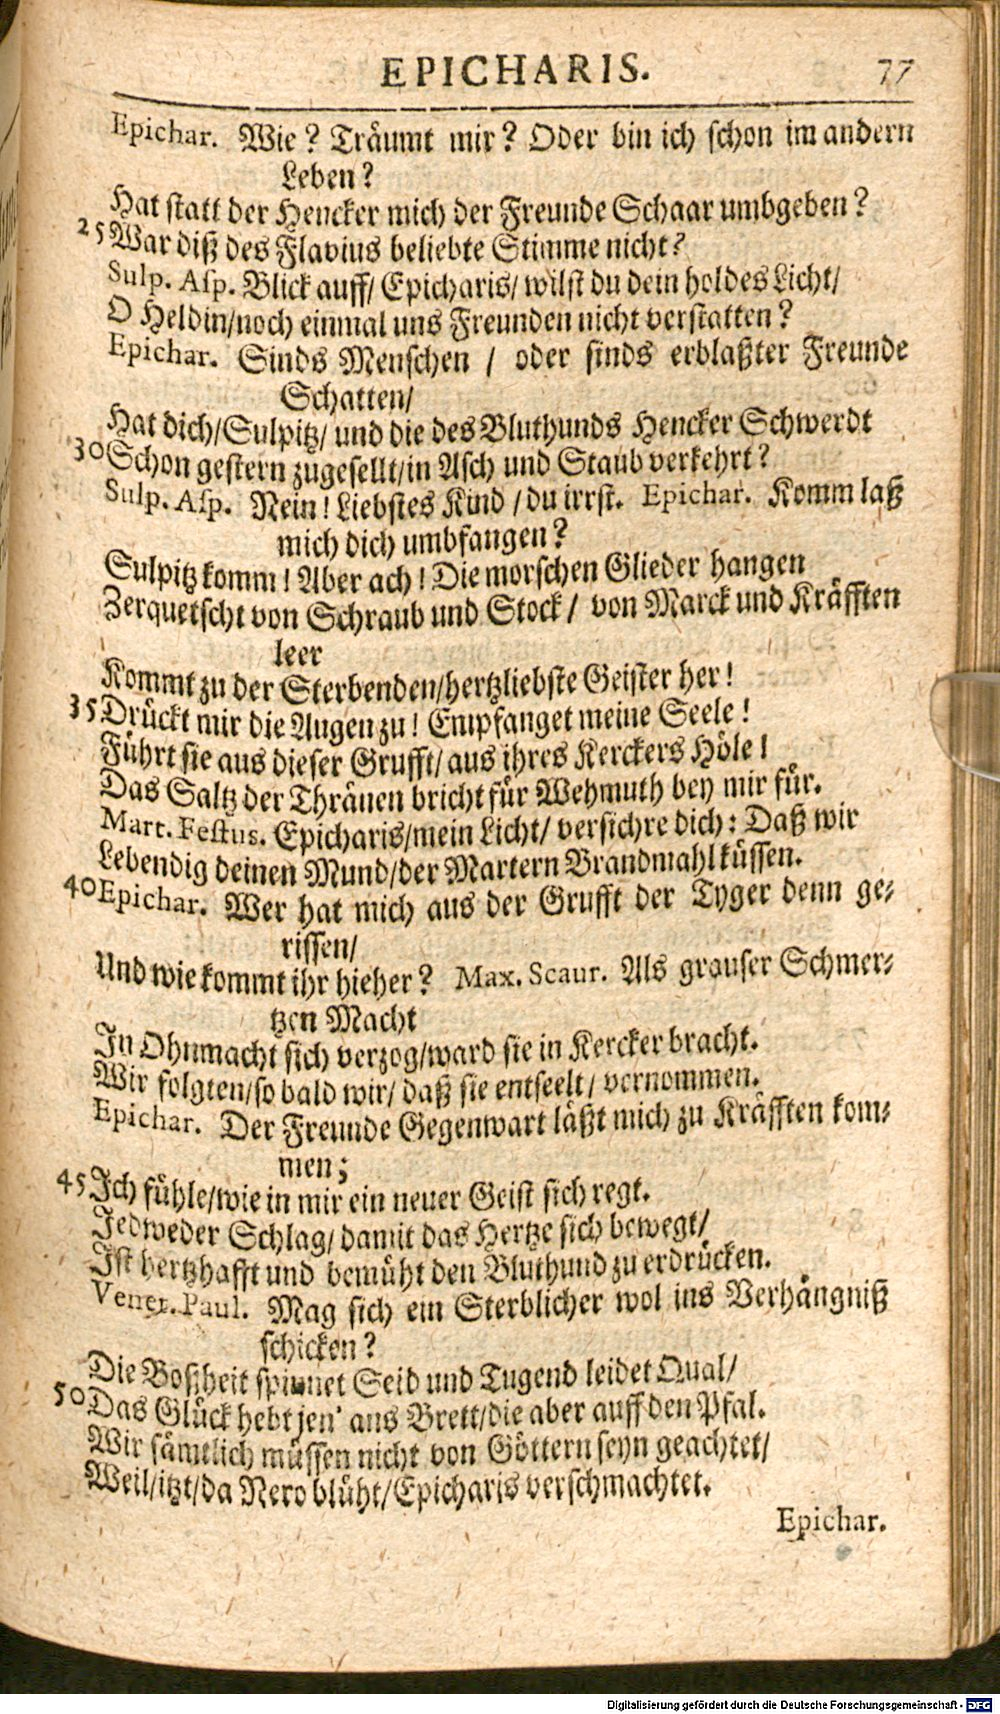 EPICHARIS. 77
Epichar. Wie? Träumt mir? Oder bin ich schon im andern
Leben?
Hat statt der Hencker mich der Freunde Schaar umbgeben?
25 War diß des Flavius beliebte Stimme nicht?
Sulp. Asp. Blick auff/ Epicharis/ wilst du dein holdes Licht/
O Heldin/noch einmal uns Freunden nicht verstatten?
Epichar. Sinds Menschen / oder sinds erblaßter Freunde
Schatten/
Hat dich/Sulpitz/ und die des Bluthunds Hencker Schwerdt
30 Schon gestern zugesellt/in Asch und Staub verkehrt?
Sulp. Asp. Nein! Liebstes Kind / du irrst. Epichar. Komm laß
mich dich umbfangen?
Sulpitz komm! Aber ach! Die morschen Glieder hangen
Zerquetscht von Schraub und Stock/ von Marck und Kräfften
leer
Kommt zu der Sterbenden/hertzliebste Geister her!
35 Drückt mir die Augen zu! Empfanget meine Seele!
Führt sie aus dieser Grufft/ aus ihres Kerckers Höle!
Das Saltz der Thränen bricht für Wehmuth bey mir für.
Mart. Festus. Epicharis/mein Licht/ versichre dich: Daß wir
Lebendig deinen Mund/der Martern Brandmahl küssen.
40 Epichar. Wer hat mich aus der Grufft der Tyger denn ge-
rissen/
Und wie kommt ihr hieher? Max. Scaur. Als grauser Schmer-
tzen Macht
In Ohnmacht sich verzog/ward sie in Kercker bracht.
Wir folgten/so bald wir/ daß sie entseelt/ vernommen.
Epichar. Der Freunde Gegenwart läßt mich zu Kräfften kom-
men;
45 Ich fühle/wie in mir ein neuer Geist sich regt.
Jedweder Schlag/ damit das Hertze sich bewegt/
Ist hertzhafft und bemüht den Bluthund zu erdrücken.
Venet. Paul. Mag sich ein Sterblicher wol ins Verhängniß
schicken?
Die Boßheit spinnet Seid und Tugend leidet Qual/
50 Das Glück hebt jen' ans Brett/die aber auff den Pfal.
Wir sämtlich müssen nicht von Göttern seyn geachtet/
Weil/itzt/da Nero blüht/Epicharis verschmachtet.
Epichar.
Digitalisierung gefördert durch die Deutsche Forschungsgemeinschaft - DFG